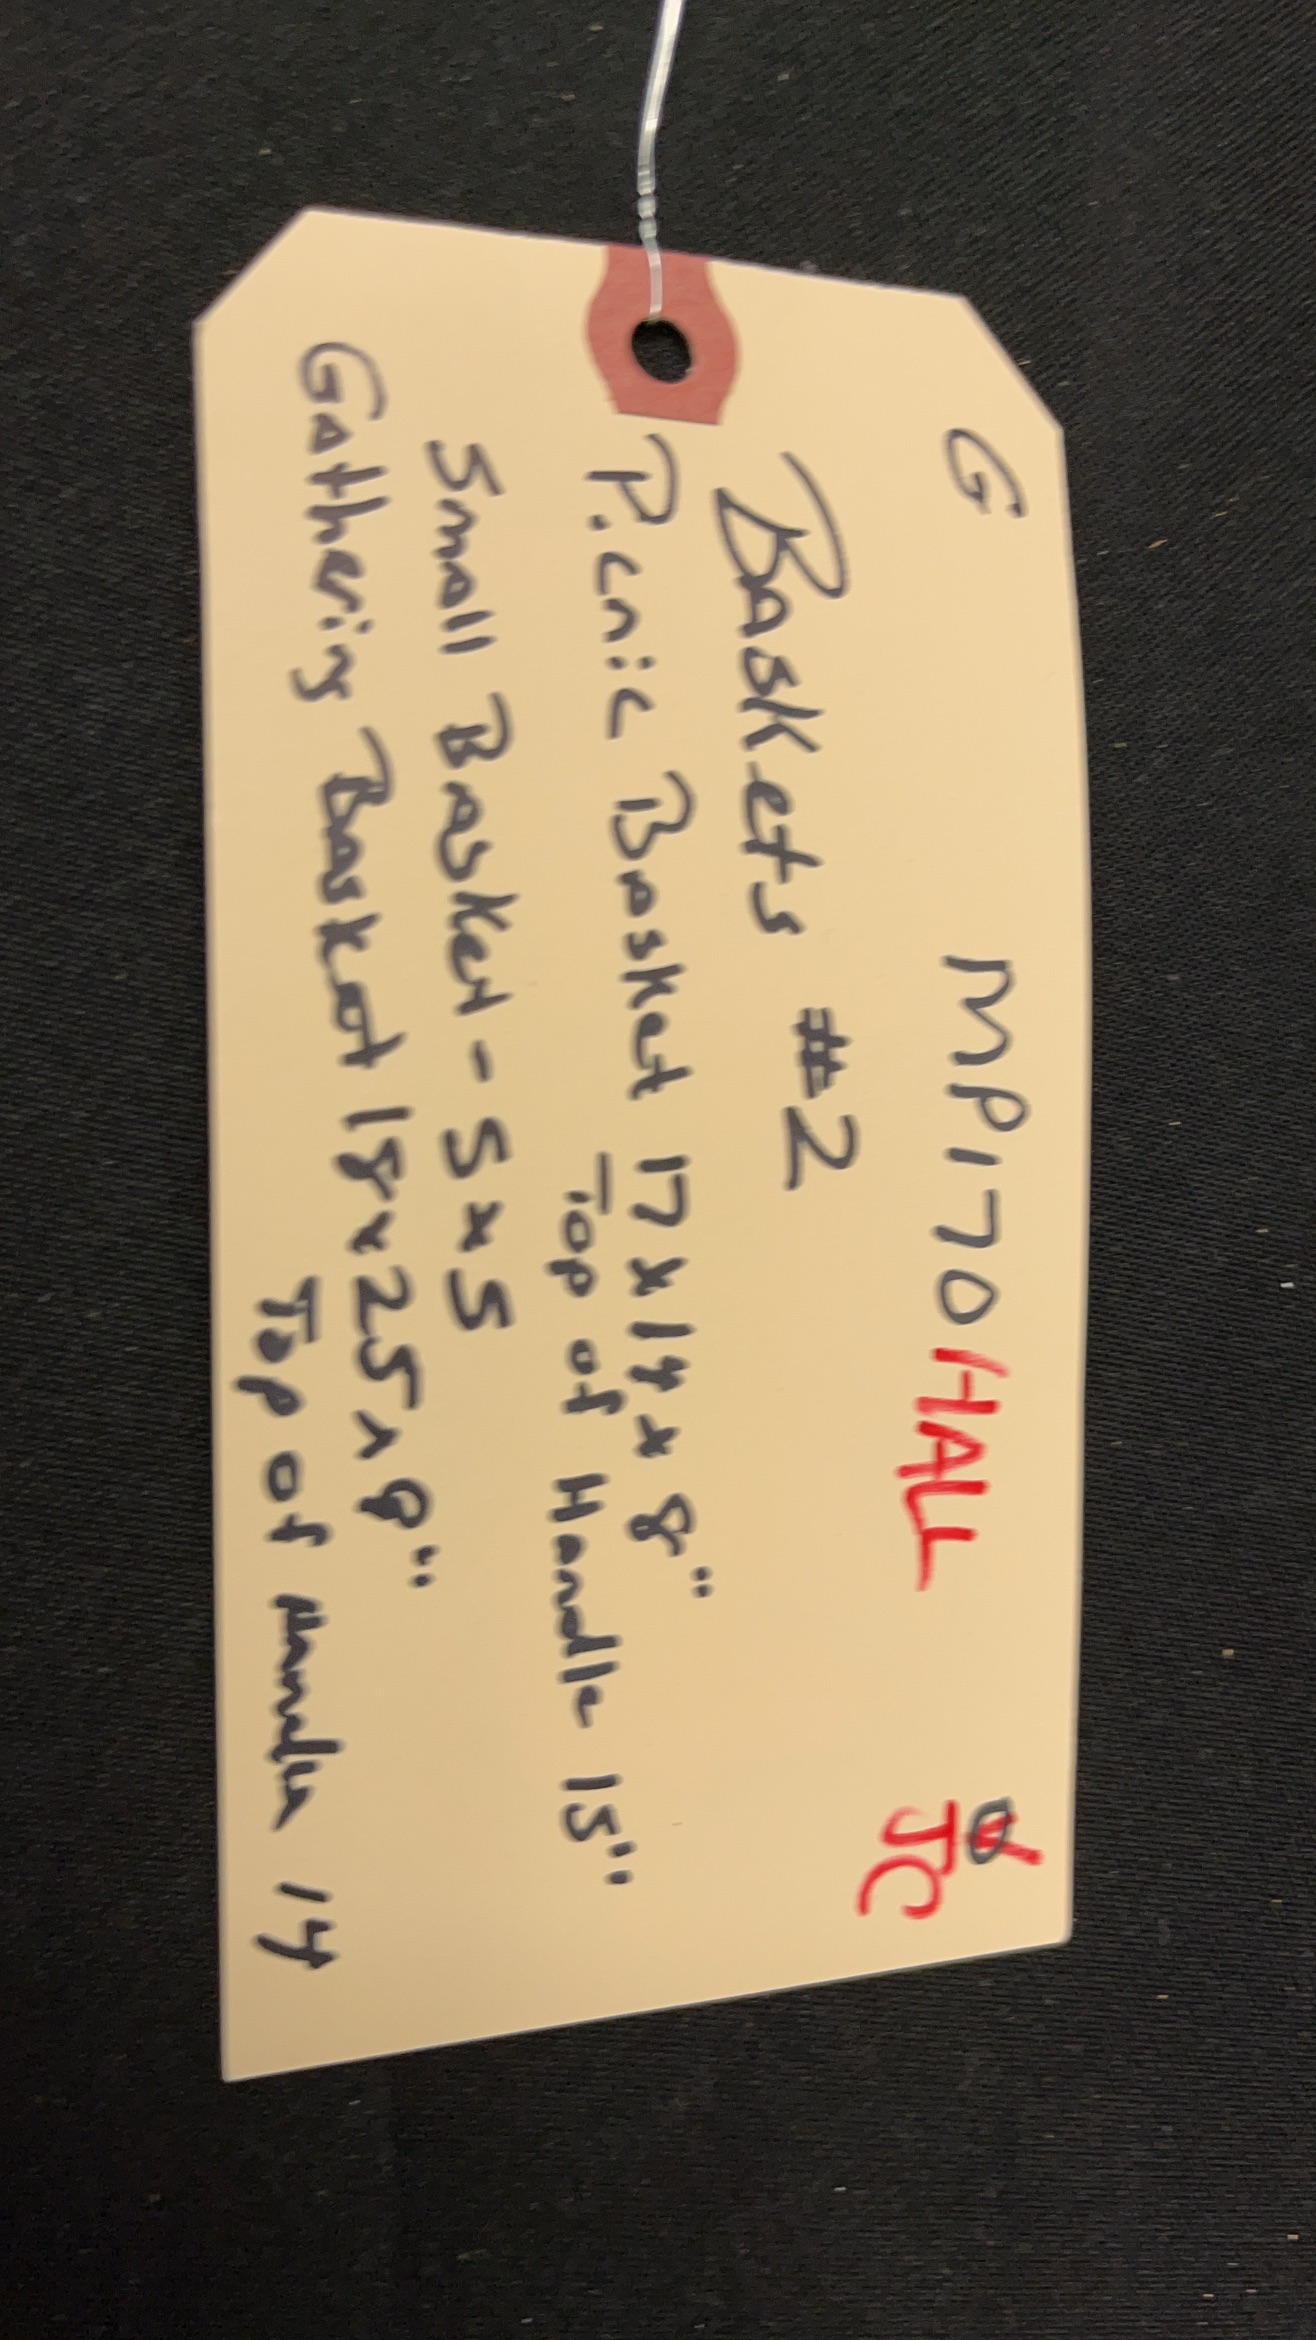 G MP170 HALL
JC
Baskets #2
Picnic Basket 17 x 14 x 8"
Top of Handle 15"
Small Basket - 5 x 5
Gathering Basket 18 x 25 x 9"
Top of Handle 14